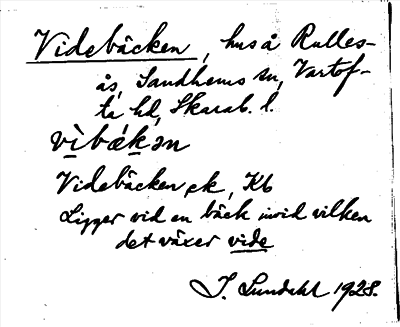 Videbäcken, hus å Rulles-
ås, Sandhems sn, Vartof-
ta hd, Skarab. l.
vìbákən
Videbäcken ek, Kb
Ligger vid en bäck invid vilken
det växer vide
J. Lundahl 1928.